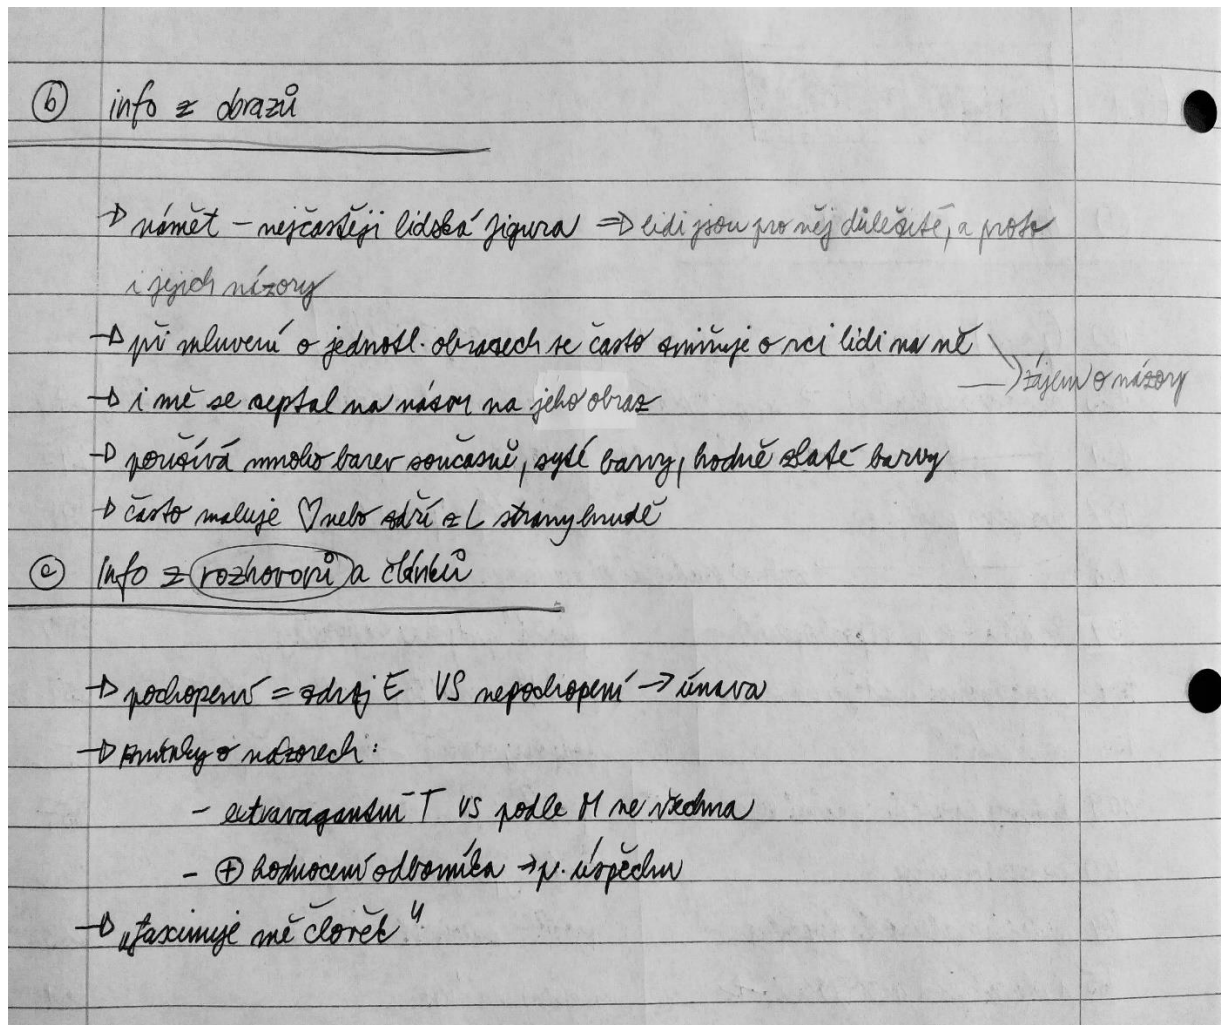 ⓑ info z obrazů
→ námět – nejčastěji lidská figura ⇒ lidi jsou pro něj důležité, a proto
i jejich názory
→ při mluvení o jednotl. obrazech se často zmiňuje o rci lidi na ně
→ i mě se zeptal na názor na jeho obraz
zájem o názory
→ používá mnoho barev současně, syté barvy, hodně zlaté barvy
→ často maluje ♡ nebo edří z L strany hrudě
ⓒ info z rozhovorů a článků
→ pochopení = zdroj E VS nepochopení → únava
→ zmínky o názorech:
- extravagantní T VS podle M ne všechna
- ⊕ hodnocení odborníka → p. úspěchu
→ „fascinuje mě člověk"